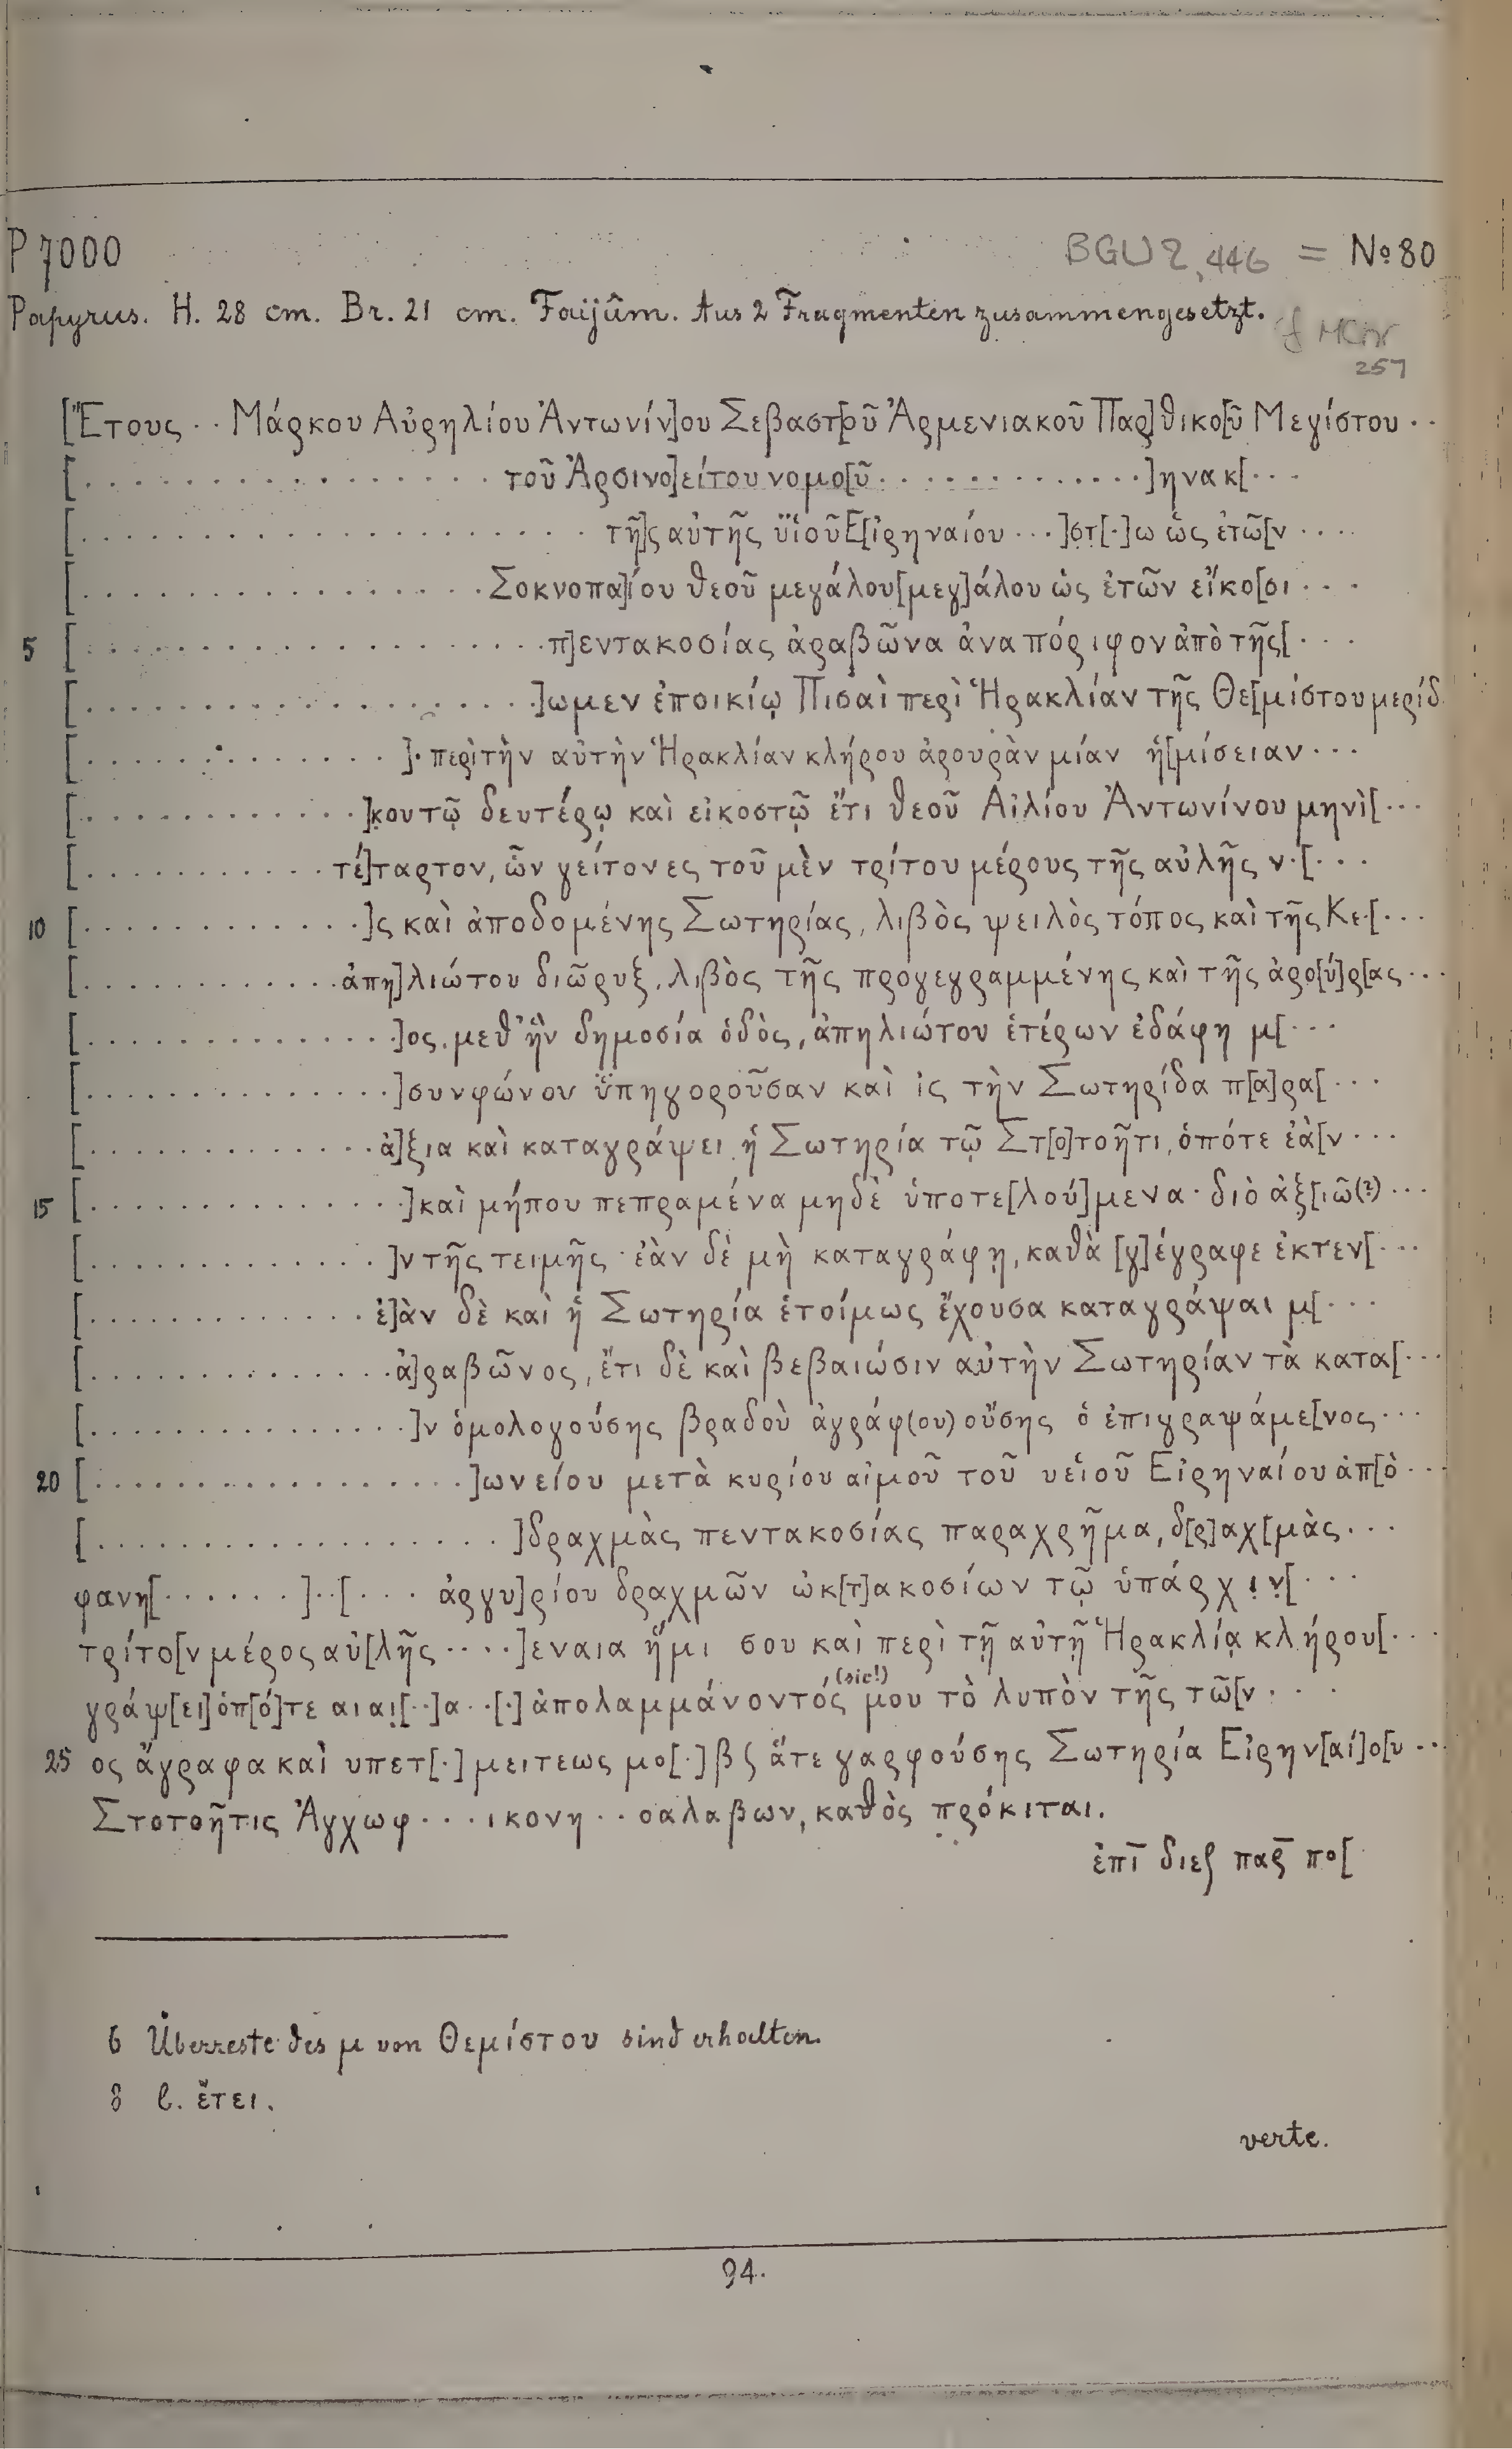 P 7000
BGU 2, 446 = No 80
Papyrus. H. 28 cm. Br. 21 cm. Faijûm. Aus 2 Fragmenten zusammengesetzt.
cf
257
[Ἔτους · · Μάρκου Αὐρηλίου Ἀντωνίν]ου Σεβαστ[οῦ Ἀρμενιακοῦ Παρ]θικο[ῦ Μεγίστου · ·
[. . . . . . . . . . . . . . . . τοῦ Ἀρσινο]είτου νομο[ῦ . . . . . . . . . . . . .]ηνακ[ · · ·
[. . . . . . . . . . . . . . . . . . . . τῆ]ς αὐτῆς ὑϊοῦ Ε[ἰρηναίου · · · ]στ[·]ω ὡς ἐτῶ[ν · · · ·
[. . . . . . . . . . . . . . . . Σοκνοπα]ίου θεοῦ μεγάλου [μεγ]άλου ὡς ἐτῶν εἴκο[σι · · ·
5 [. . . . . . . . . . . . . . . . . . π]εντακοσίας ἀραβῶνα ἀναπόριφον ἀπὸ τῆς[ · · ·
[. . . . . . . . . . . . . . . . . .]ωμεν ἐποικίῳ Πισαὶ περὶ Ἡρακλίαν τῆς Θε[μίστου μερίδ
[. . . . . . . . . . . . .]· περὶ τὴν αὐτὴν Ἡρακλίαν κλήρου ἀρουρὰν μίαν ἡ[μίσειαν · · ·
[. . . . . . . . . . . .]κου τῷ δευτέρῳ καὶ εἰκοστῷ ἔτι θεοῦ Αἰλίου Ἀντωνίνου μηνὶ[ · · ·
[. . . . . . . . . . . τέ]ταρτον, ὧν γείτονες τοῦ μὲν τρίτου μέρους τῆς αὐλῆς ν·[ · · ·
10 [. . . . . . . . . . . . .]ς καὶ ἀποδομένης Σωτηρίας, λιβὸς ψειλὸς τόπος καὶ τῆς Κε·[ · · ·
[. . . . . . . . . . . . ἀπη]λιώτου διῶρυξ, λιβὸς τῆς προγεγραμμένης καὶ τῆς ἀρο[ύ]ρ[ας · · ·
[. . . . . . . . . . . . . .]ος, μεθ' ἣν δημοσία ὁδὸς, ἀπηλιώτου ἑτέρων ἐδάφη μ[ · · ·
[. . . . . . . . . . . . . .]συνφώνου ὑπηγοροῦσαν καὶ ἰς τὴν Σωτηρίδα π[α]ρα[ · · ·
[. . . . . . . . . . . . . ἀ]ξια καὶ καταγράψει ἡ Σωτηρία τῷ Στ[ο]τοῆτι, ὁπότε ἐὰ[ν · · ·
15 [. . . . . . . . . . . . . .]καὶ μήπου πεπραμένα μηδὲ ὑποτε[λού]μενα· διὸ ἀξ[ιῶ(?) · · ·
[. . . . . . . . . . . . .]ν τῆς τειμῆς· ἐὰν δὲ μὴ καταγράφῃ, καθὰ [γ]έγραφε ἐκτεν[ · · ·
[. . . . . . . . . . . . . ἐ]ὰν δὲ καὶ ἡ Σωτηρία ἑτοίμως ἔχουσα καταγράψαι μ[ · · ·
[. . . . . . . . . . . . . . ἀ]ραβῶνος, ἔτι δὲ καὶ βεβαιώσιν αὐτὴν Σωτηρίαν τὰ κατα[ · · ·
[. . . . . . . . . . . . . . .]ν ὁμολογούσης βραδοὺ ἀγράφ(ου) οὔσης ὁ ἐπιγραψάμε[νος · · ·
20 [. . . . . . . . . . . . . . . . .]ωνείου μετὰ κυρίου αἰμοῦ τοῦ υεἱοῦ Εἰρηναίου ἀπ[ὸ · · ·
[. . . . . . . . . . . . . . . . . . .]δραχμὰς πεντακοσίας παραχρῆμα, δ[ρ]αχ[μὰς · · ·
φανη[ · · · · · · ] · · [ · · · ἀργυ]ρίου δραχμῶν ὠκ[τ]ακοσίων τῷ ὑπάρχιν[ · · ·
τρίτο[ν μέρος αὐ[λῆς · · · · ]εναια ἥμισου καὶ περὶ τῇ αὐτῇ Ἡρακλίᾳ κλήρου[ · · ·
γράψ[ει] ὁπ[ό]τε αιαι[··]α··[·] ἀπολαμμάνοντός (sic!) μου τὸ λυπὸν τῆς τῶ[ν · · ·
25 ος ἄγραφα καὶ υπετ[·]μειτεως μο[·]βς ἅτε γαρφούσης Σωτηρία Εἰρην[αί]ο[υ · · ·
Στοτοῆτις Ἀγχωφ · · · ικονη · · σαλαβων, καθὸς πρόκιται.
ἐπῑ διεϛ παρ̄ πο[
6 Überreste des μ von Θεμίστου sind erhalten.
8 l. ἔτει.
verte.
94.